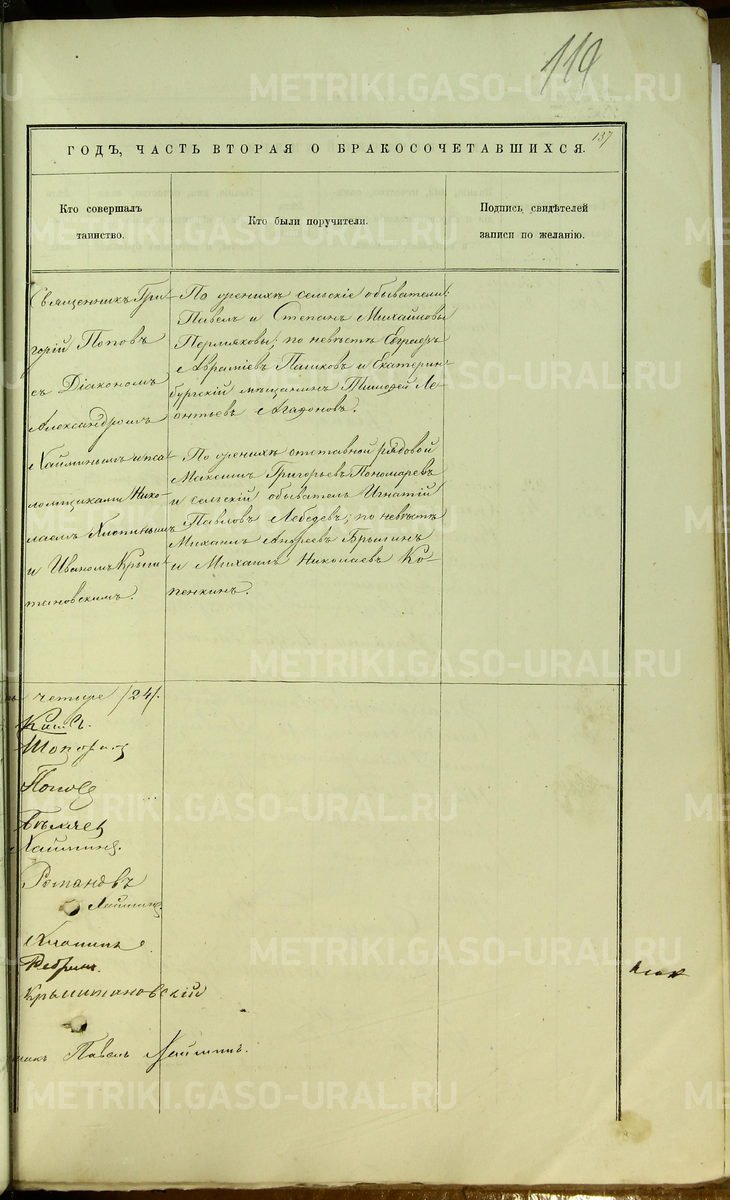 119
137
ГОДЪ, ЧАСТЬ ВТОРАЯ О БРАКОСОЧЕТАВШИХСЯ.
Кто совершалъ
таинство.
Кто были поручители.
Подпись свидѣтелей
записи по желанію.
Священникъ Гри-
горій Поповъ
съ Діакономъ
Александромъ
Лайминымъ и пса-
ломщиками Нико-
лаемъ Хлопинымъ
и Иваномъ Крыжи-
тановскимъ.
По женихѣ сельскіе обыватели:
Павелъ и Степанъ Михайловы
Пермяковы; по невѣстѣ Евграфъ
Авраміевъ Пашковъ и Екатерин-
бургскій мѣщанинъ Тимофей Ле-
онтьевъ Агафоновъ.
По женихѣ отставной рядовой
Максимъ Григорьевъ Пономаревъ
и сельскій обыватель Игнатій
Павловъ Лебедевъ; по невѣстѣ
Михаилъ Андреевъ Брыгинъ
и Михаилъ Николаевъ Ко-
пенкинъ.
четыре /24/.
Поповъ
Романовъ
Лайминъ
Хлопинъ
Ребринъ
Павелъ Лайминъ.
METRIKI.GASO-URAL.RU